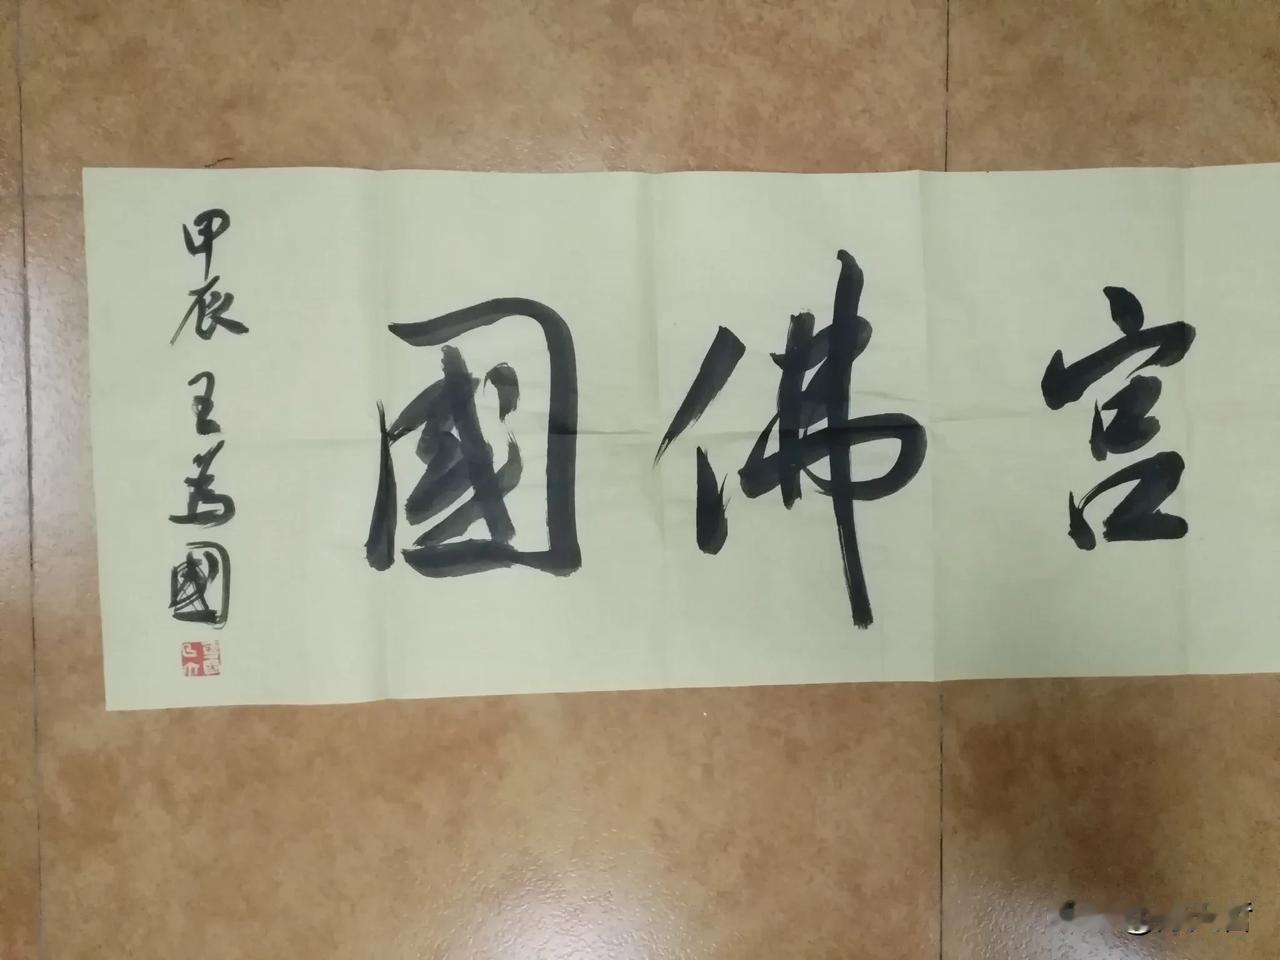 宫佛國
甲辰 王為國